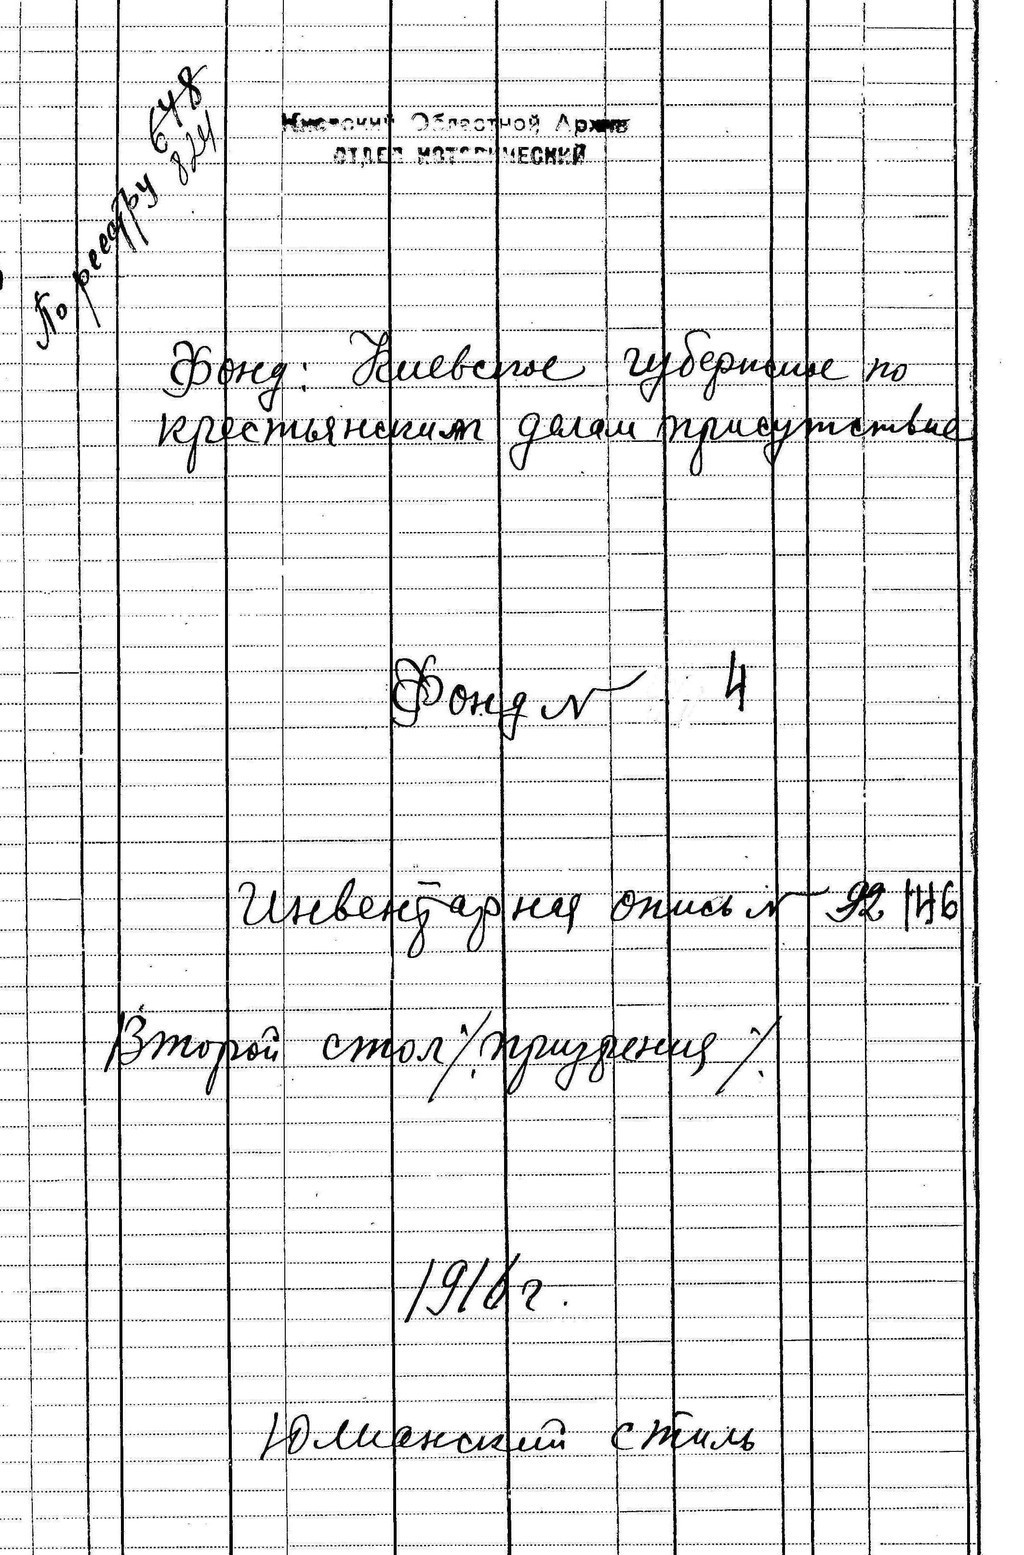 По реестру 648
824
Киевский Областной Архив
ОТДЕЛ ИСТОРИЧЕСКИЙ
Фонд: Киевское губернское по
крестьянским делам присутствие
Фонд № 4
Инвентарная опись № 92 146
Второй стол /призрения/.
1916 г.
Юлианский стиль